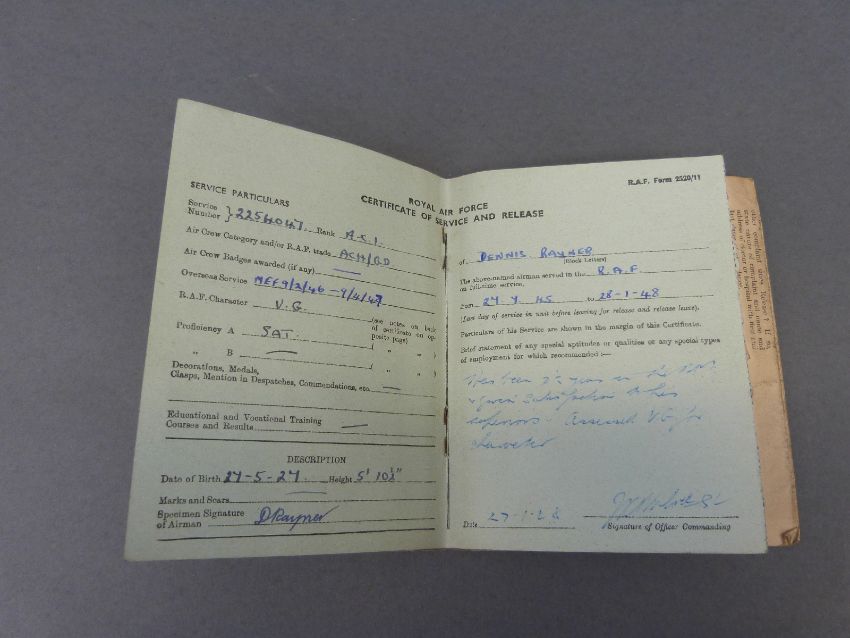 SERVICE PARTICULARS
Service
Number } 2254047 Rank A.C.1.
Air Crew Category and/or R.A.F. trade ACH/GD
Air Crew Badges awarded (if any) —
Overseas Service MEF 9/2/46 – 9/4/47
R.A.F. Character V.G (see notes on back
of certificate on op-
posite page)
Proficiency A SAT. ( " " )
" B — ( " " )
Decorations, Medals,
Clasps, Mention in Despatches, Commendations, etc. —
Educational and Vocational Training
Courses and Results —
DESCRIPTION
Date of Birth 27-5-27 Height 5' 10½"
Marks and Scars —
Specimen Signature
of Airman D Rayner
R.A.F. Form 2520/11
ROYAL AIR FORCE
CERTIFICATE OF SERVICE AND RELEASE
of DENNIS RAYNER
(Block Letters)
The above-named airman served in the R.A.F.
on full-time service,
from 27 45 to 28-1-48
(Last day of service in unit before leaving for release and release leave).
Particulars of his Service are shown in the margin of this Certificate.
Brief statement of any special aptitudes or qualities or any special types
of employment for which recommended :—
Has been 2½ years in the
& given satisfaction to his
superiors. Assessed V.G. for
character
Date 27-1-48
Signature of Officer Commanding